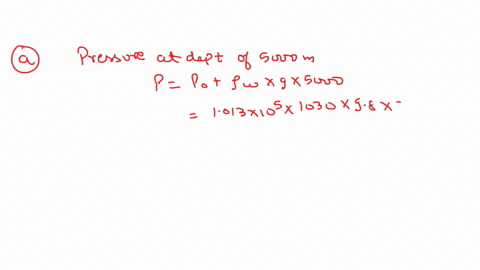 a Pressure at dept of 5000 m
P = P0 + ρw × g × 5000
= 1.013×10^5 × 1030 × 9.8 × -